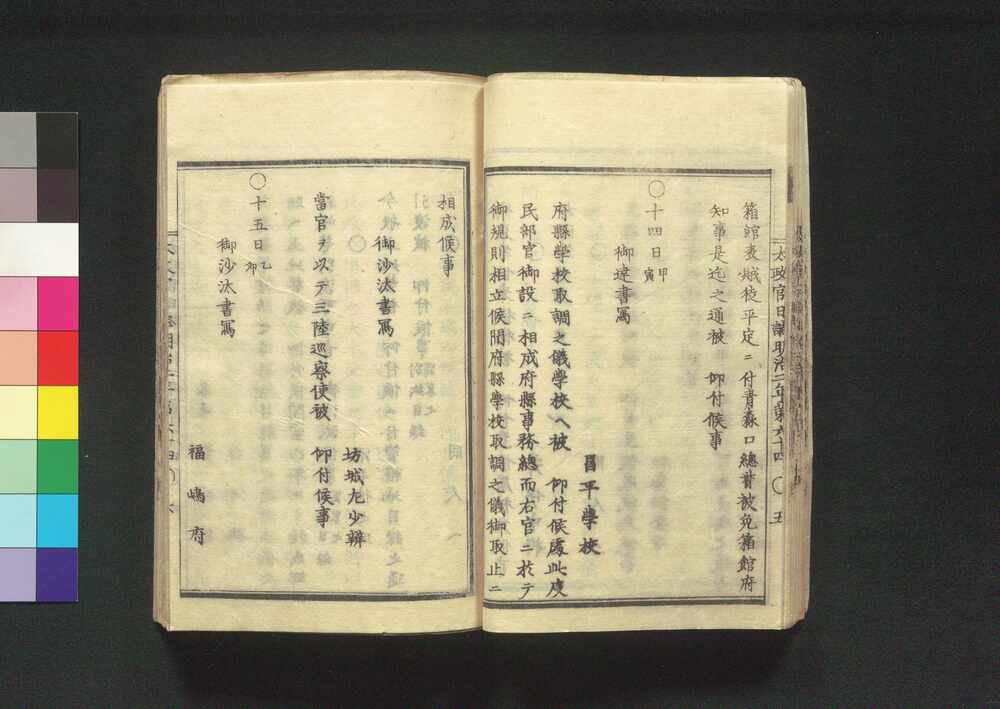 太政官日誌明治二年第六十四 〇 五
箱館表賊徒平定ニ付青森口總督被免箱館府
知事是迄之通被 仰付候事
〇十四日甲寅
御達書寫
昌平學校
府縣學校取調之儀學校ヘ被 仰付候處此度
民部官御設ニ相成府縣事務總而右官ニ於テ
御規則相立候間府縣學校取調之儀御取止ニ
相成候事
〇御沙汰書寫
坊城左少辨
當官ヲ以テ三陸巡察使被 仰付候事
〇十五日乙卯
御沙汰書寫
福嶋府